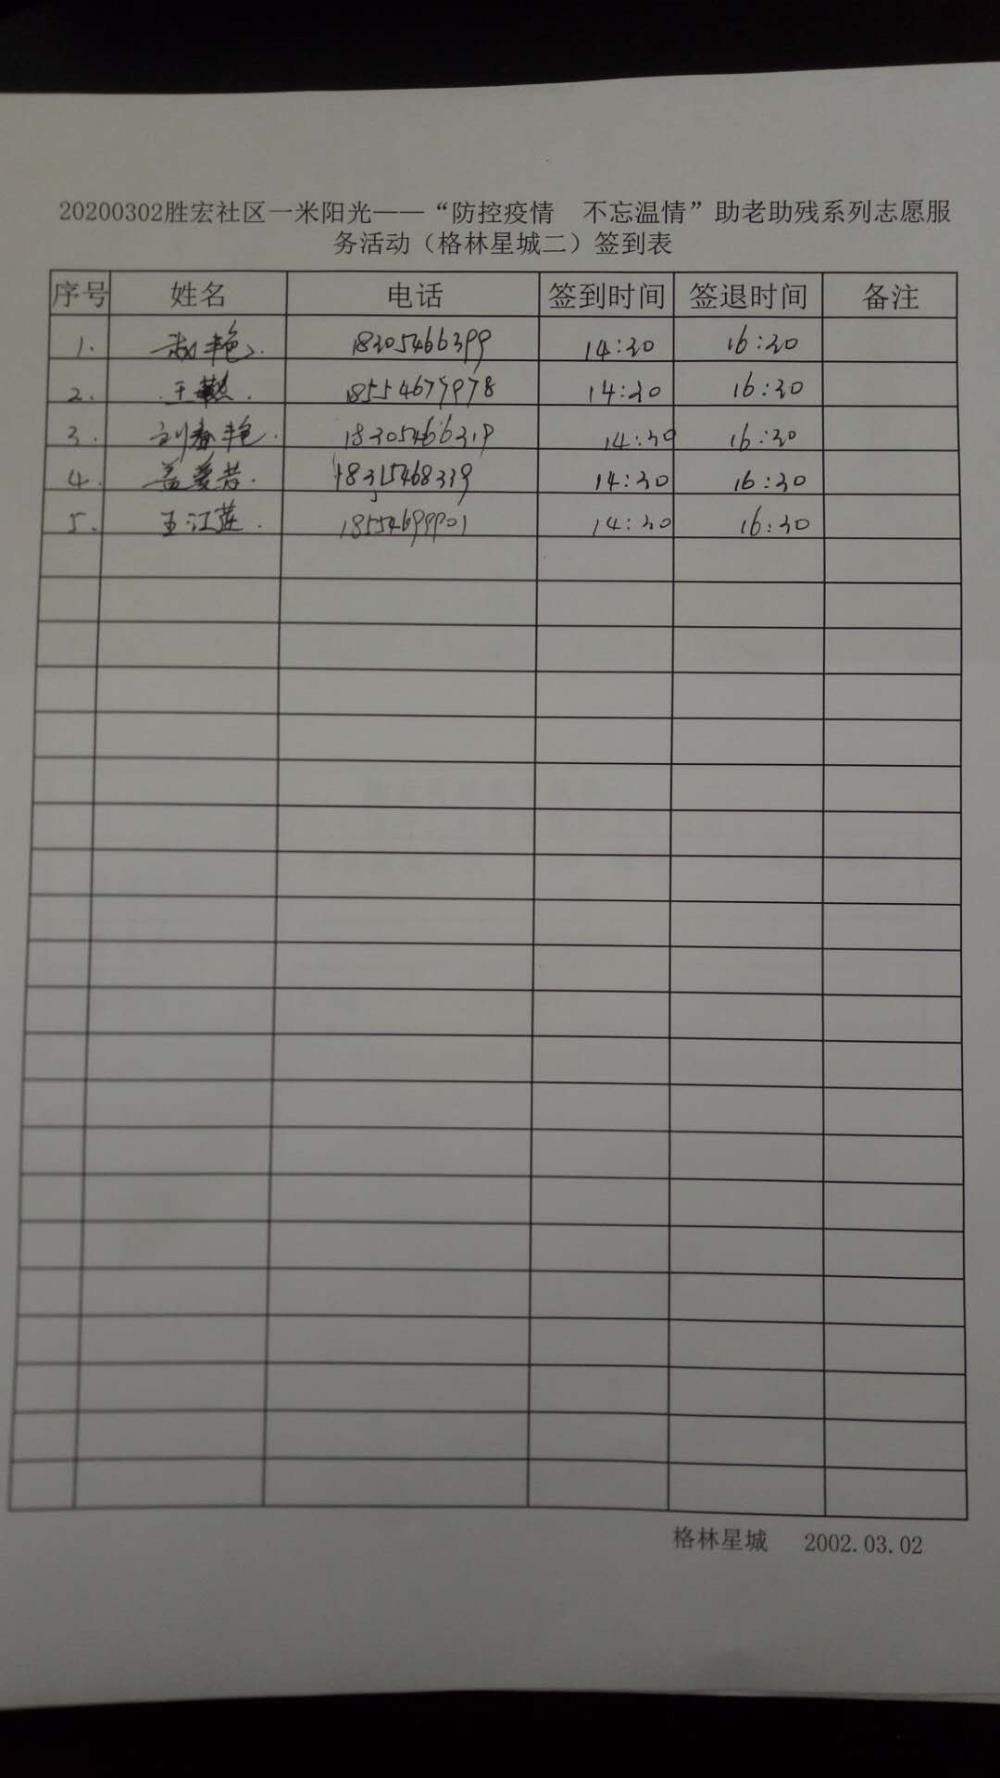 20200302胜宏社区一米阳光——“防控疫情　不忘温情”助老助残系列志愿服
务活动（格林星城二）签到表
序号 姓名 电话 签到时间 签退时间 备注
1. 艳 18305466399 14:30 16:30
2. 王 18554679978 14:30 16:30
3. 刘春艳 18305466319 14:30 16:30
4. 盖爱芳 18315468339 14:30 16:30
5. 王江莲 18554699901 14:30 16:30
格林星城 2002.03.02